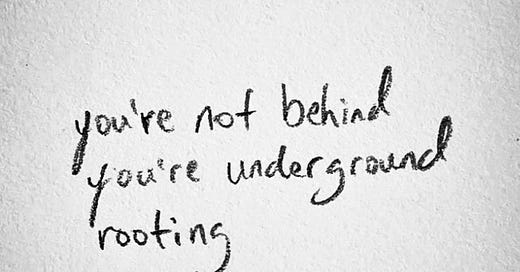 you're not behind
you're underground
rooting